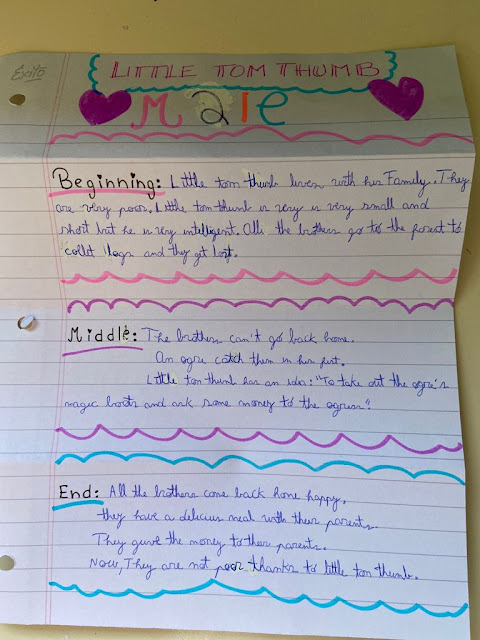 Exito
LITTLE TOM THUMB
Male
Beginning: Little tom thumb lives with his Family. They
are very poor. Little tom thumb is very is very small and
short but he is very intelligent. Alls the brothers go to the forest to
collet logs and they get lost.
Middle: The brothers can't go back home.
An ogre catch them in his
Little tom thumb has an idea: "To take out the ogre's
magic boots and ask some money to the ogress".
End: All the brothers come back home happy.
they have a delicius meal with their parents.
They the money to their parents.
Now, They are not poor thanks to little tom thumb.